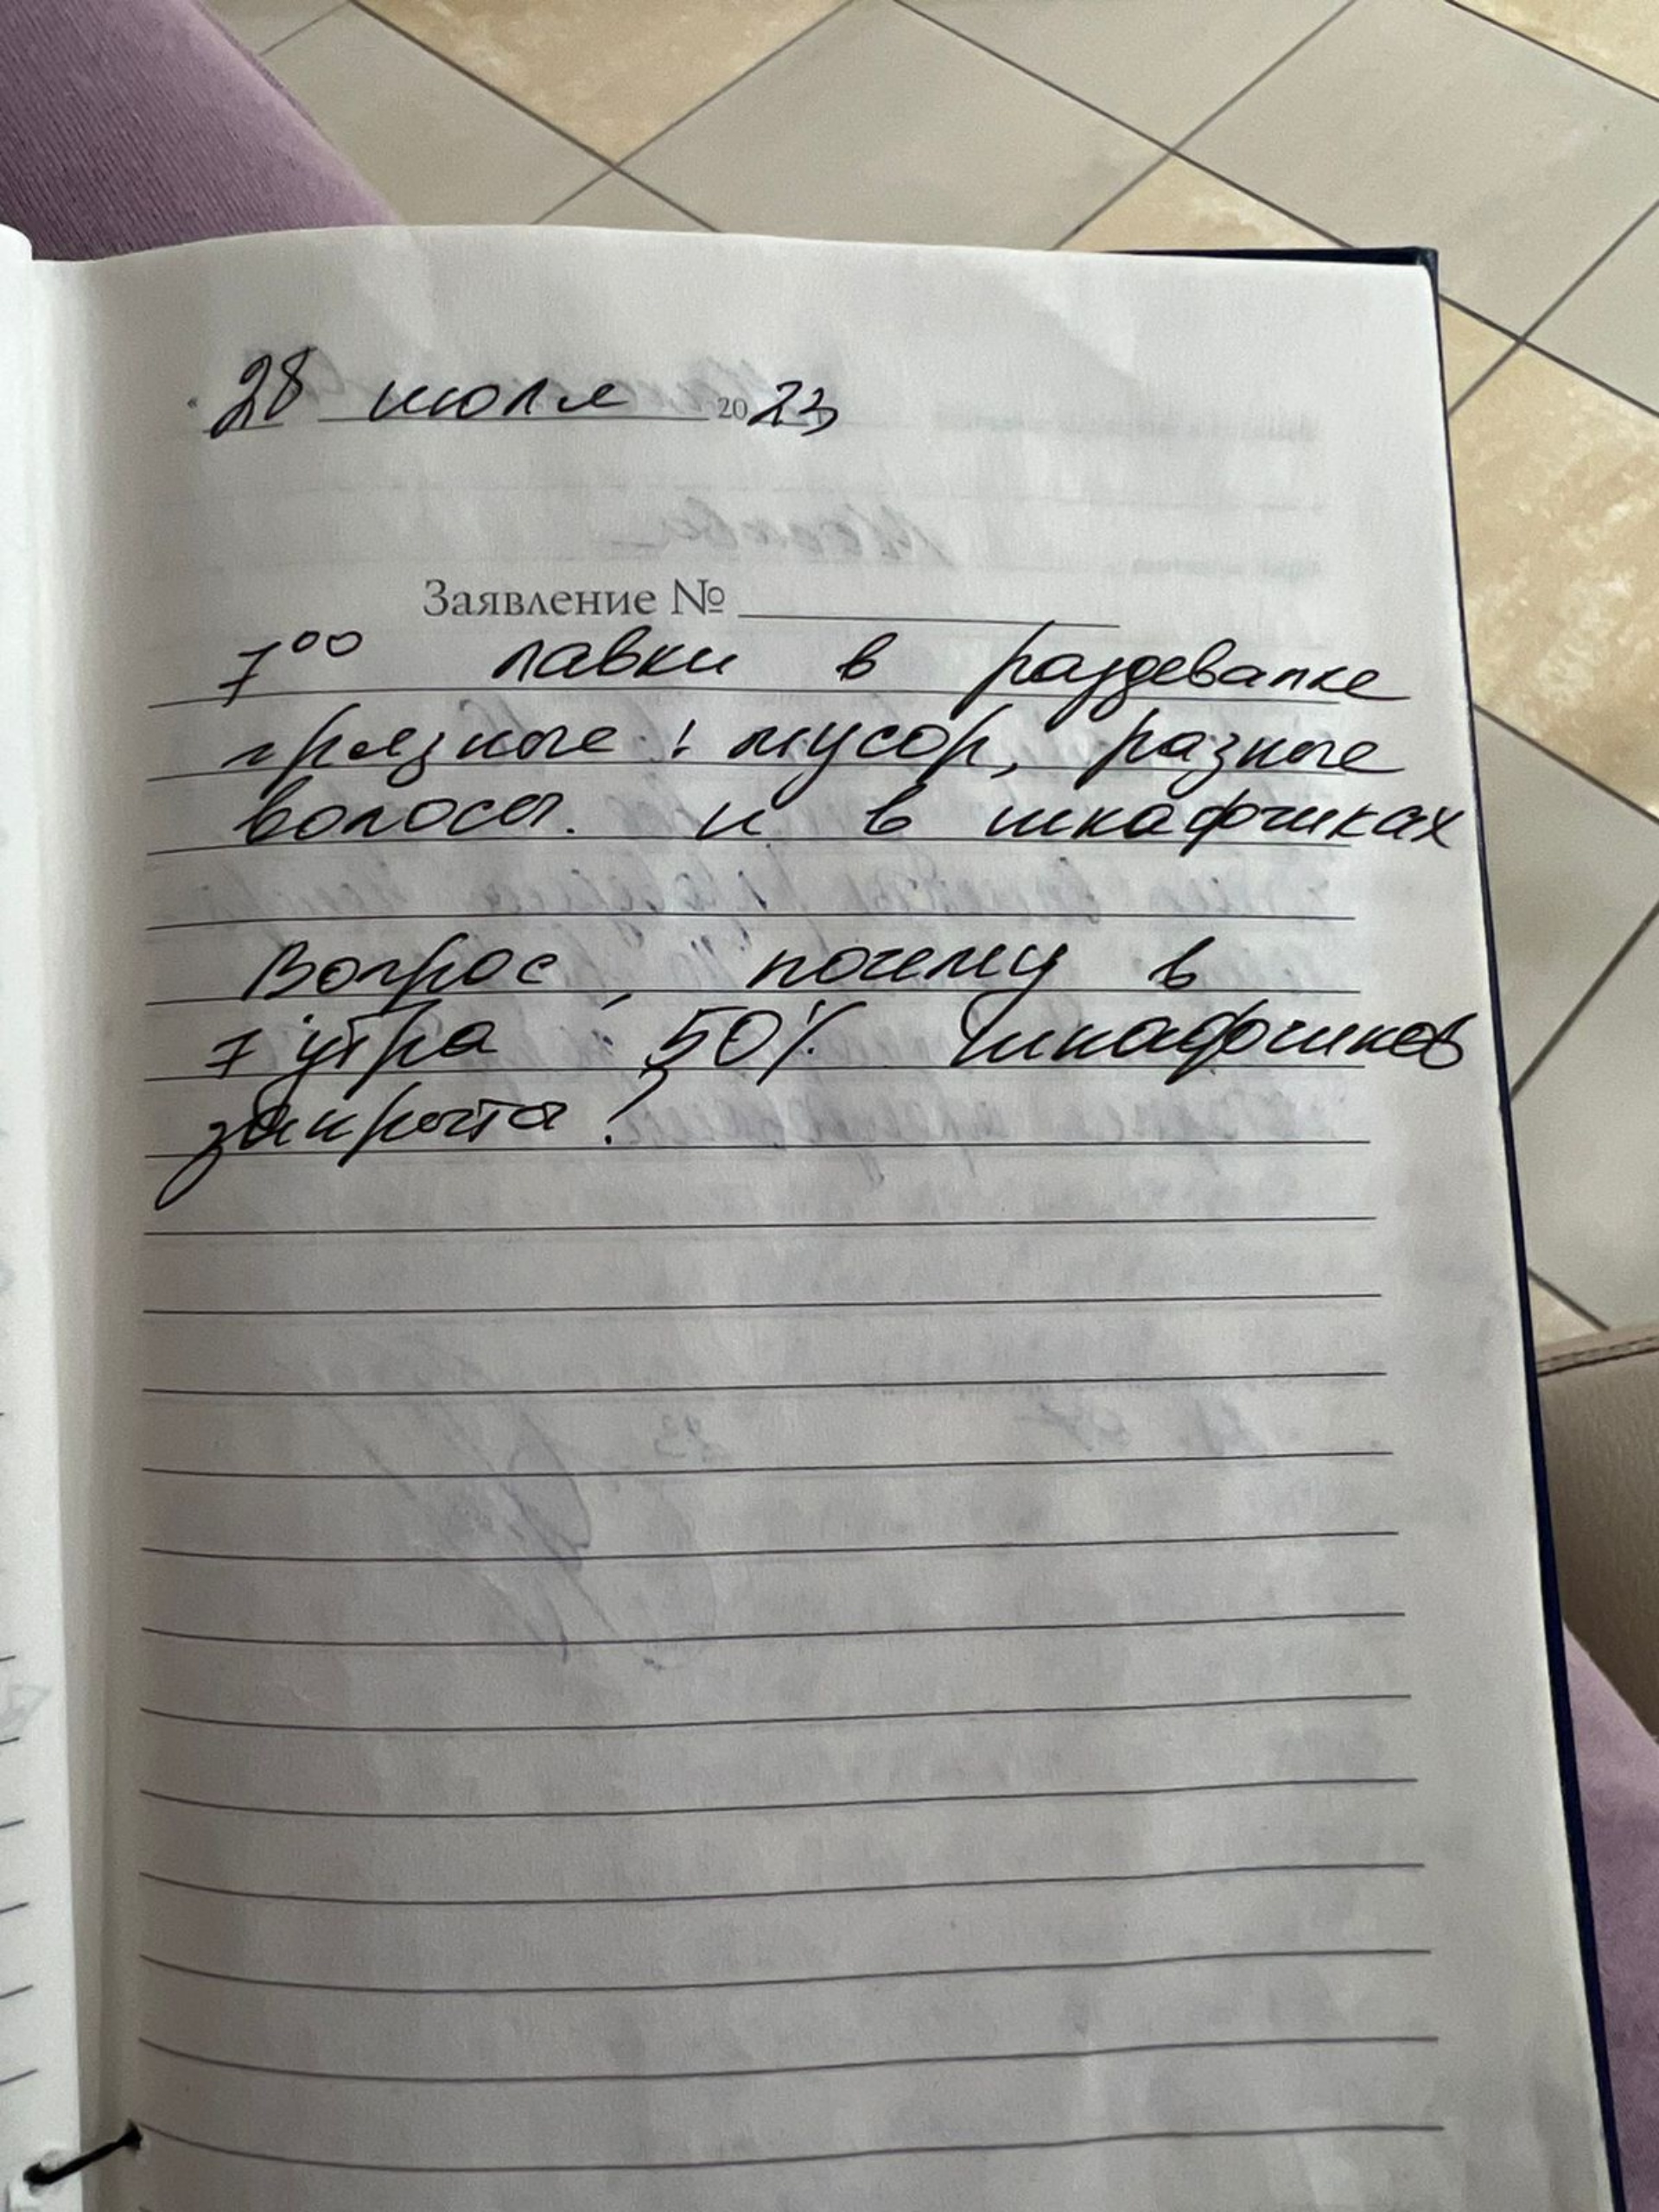 28 июля 2023
Заявление №
7⁰⁰ лавки в раздевалке
грязные: мусор, разные
волосы. и в шкафчиках
Вопрос, почему в
7 утра 50% шкафчиков
закрыта?